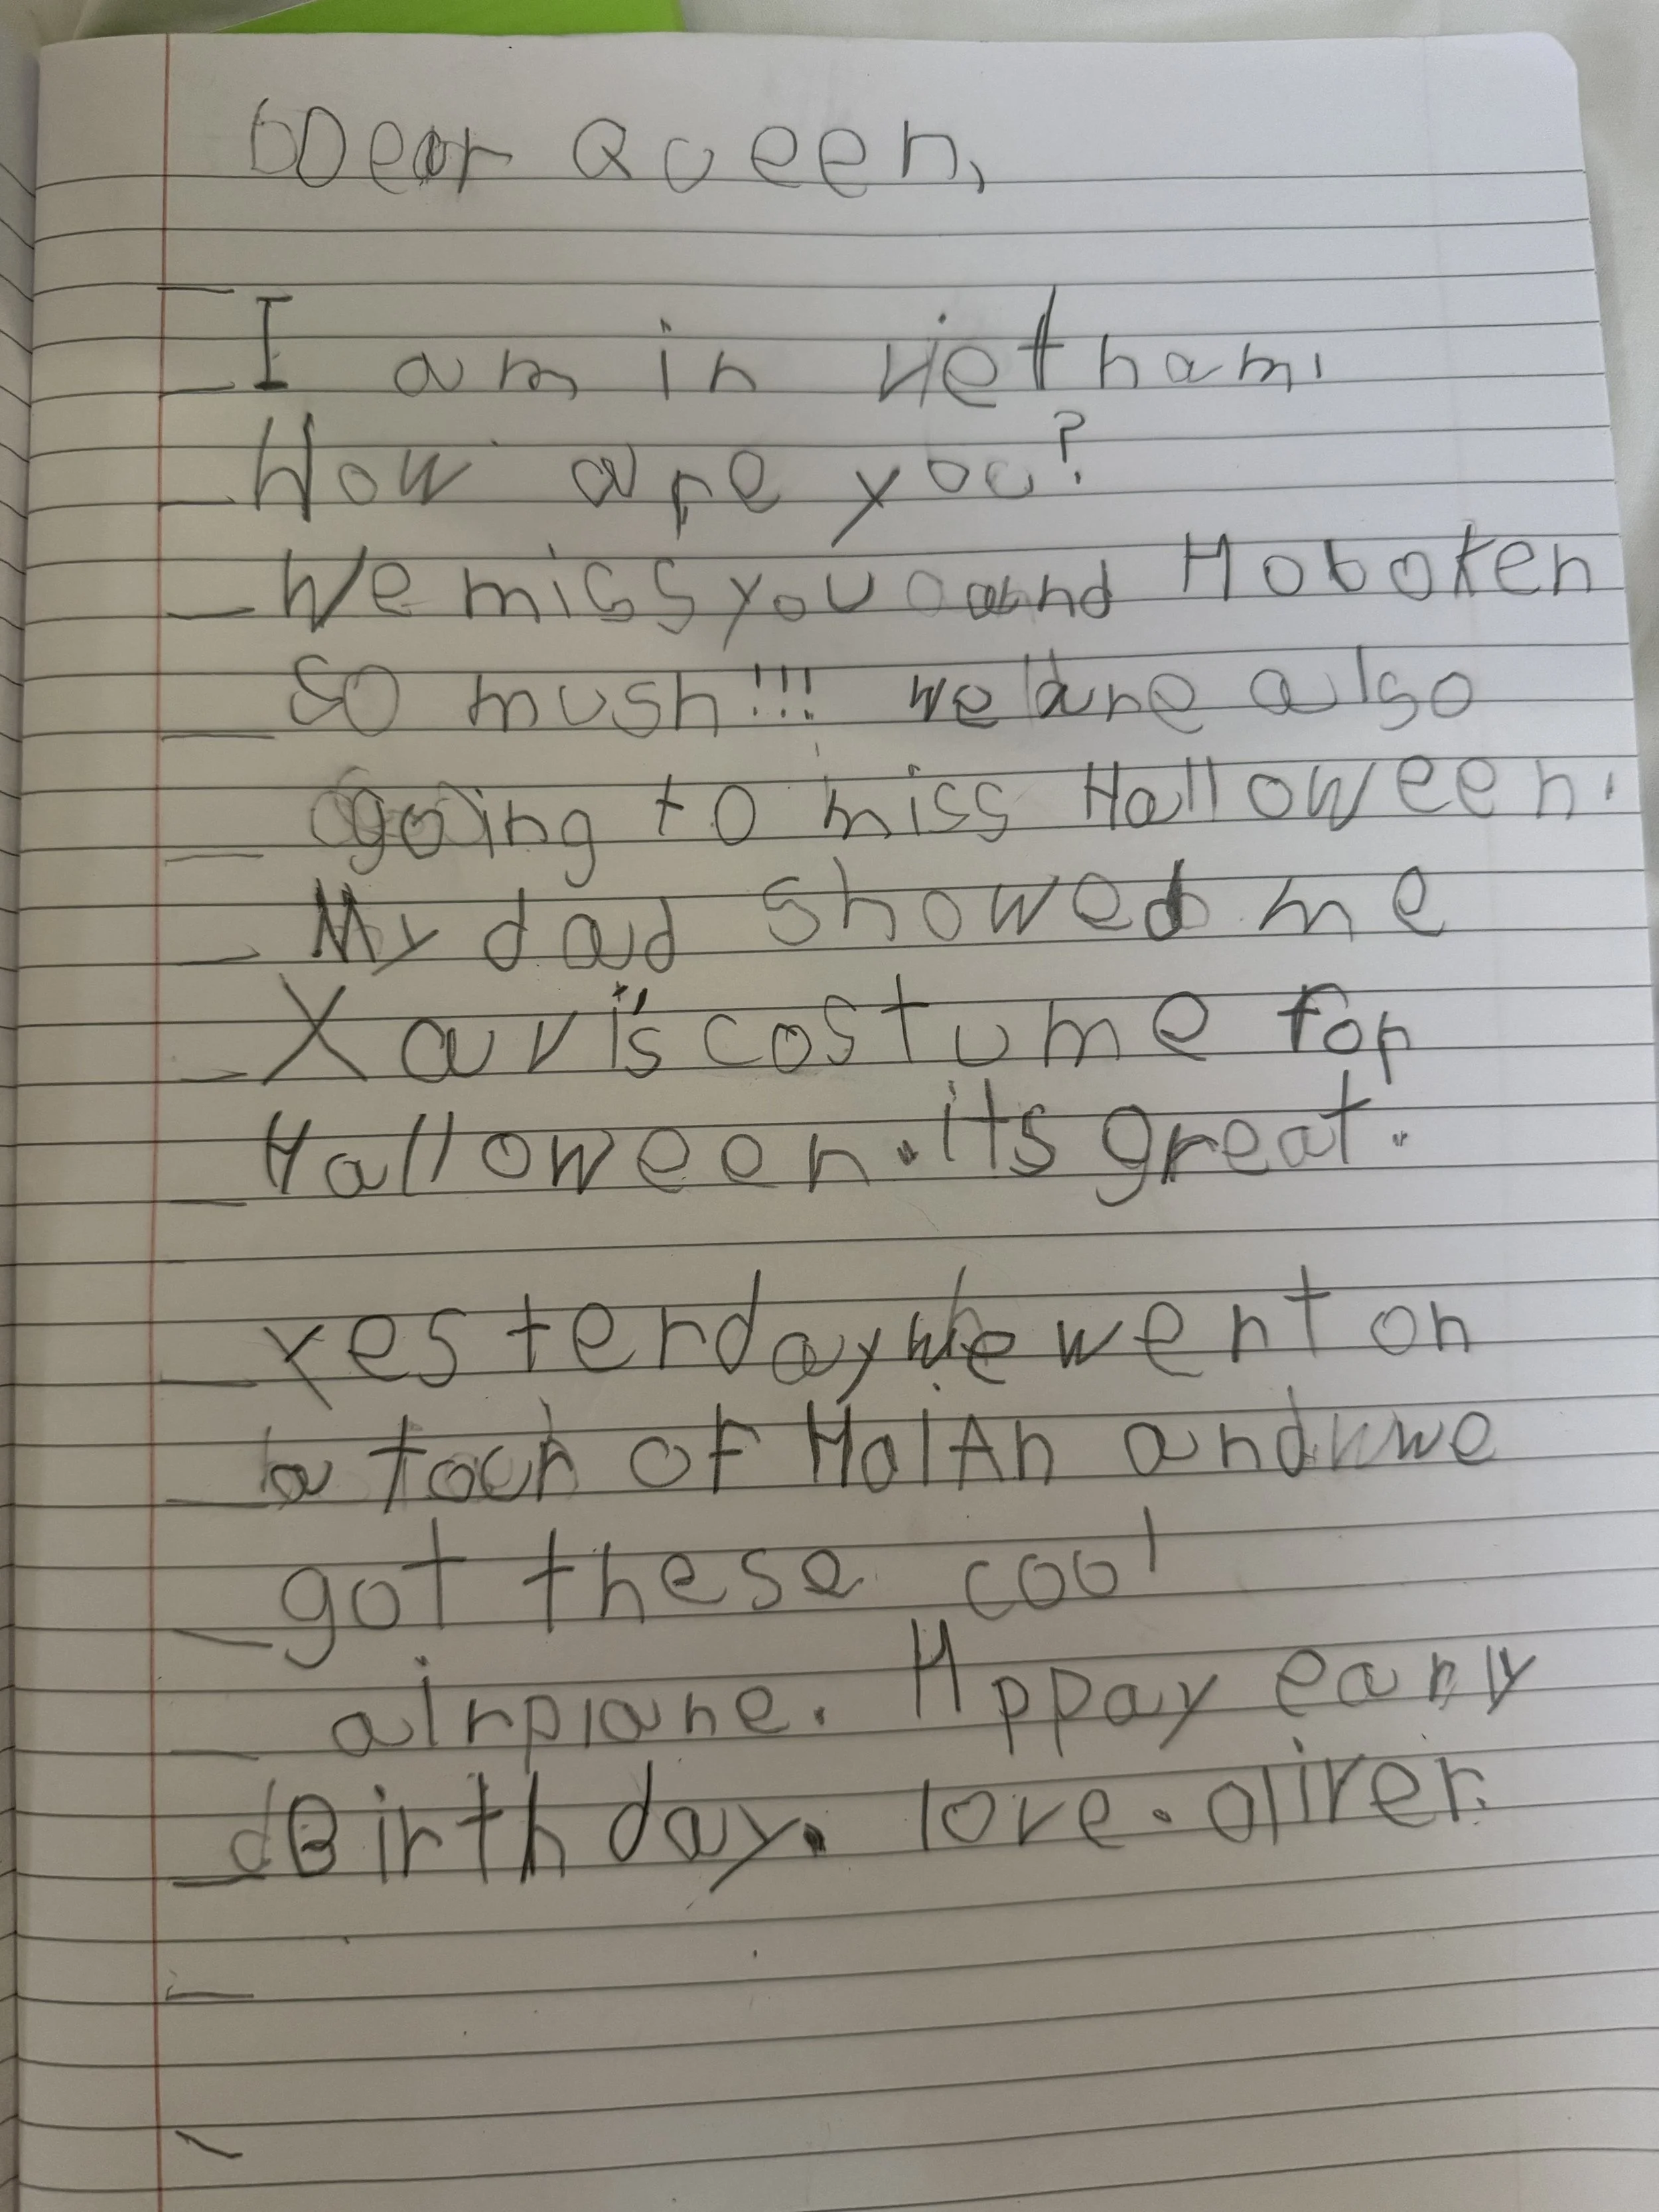 Dear Queen,
I am in vietnam.
How are you?
We miss you and Hoboken
so mush!!! we are also
going to miss Halloween.
My dad showed me
Xavi's costume for
Halloween. its great.
yesterday we went on
a tour of HoiAn and we
got these cool
airplane. Hppay early
Birthday. love. oliver.